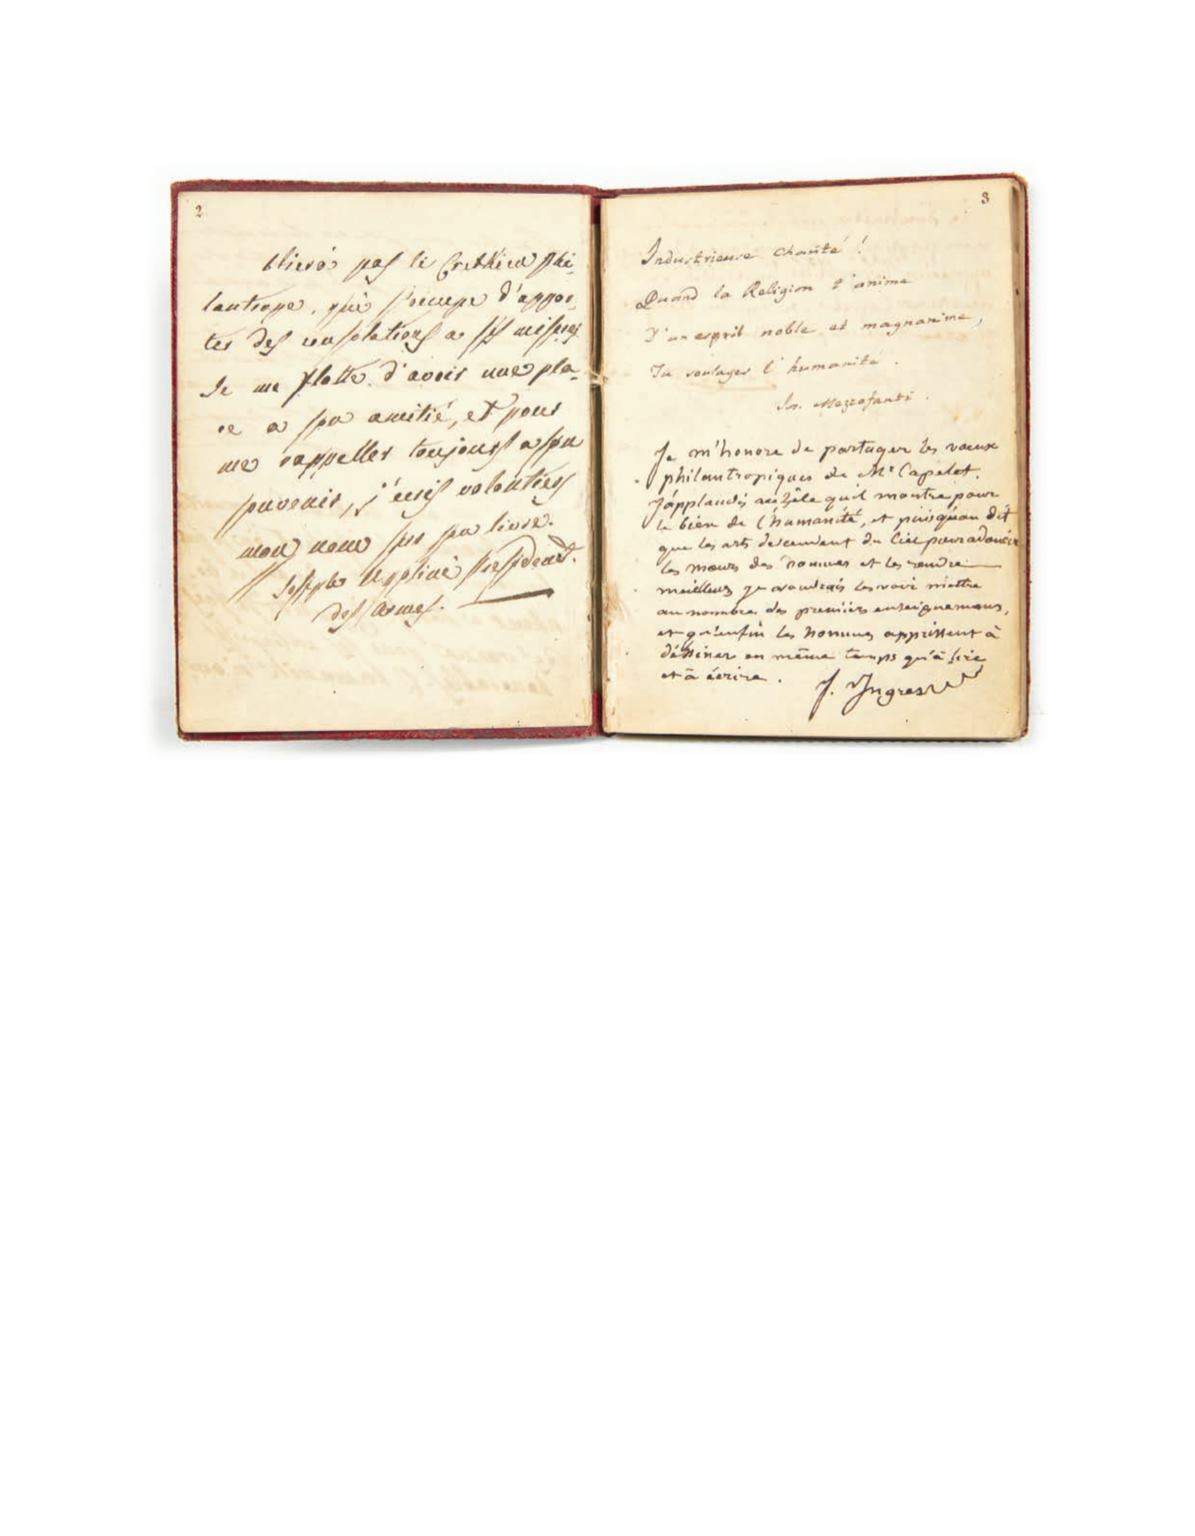 2
bliera pas le Chrétien phi-
lantrope, qui s'occupe d'appor-
ter des consolations a
Je me flatte d'avoir une pla-
ce a son amitié, et pour
me rappeller toujours a son
souvenir, j'ecris volontiers
mon nom sur son livre.
Joseph President
des
3
Industrieuse charité !
Quand la Religion t'anime
D'un esprit noble et magnanime,
Tu soulages l'humanité.
Jos. Mezzofanti.
Je m'honore de partager les vœux
philantropiques de Mr Capelet.
J'applaudis au zèle qu'il montre pour
le bien de l'humanité, et puisqu'on dit
que les arts descendent du Ciel pour adoucir
les mœurs des hommes et les rendre
meilleurs je voudrais les voir mettre
au nombre des premiers enseignemans,
et qu'enfin les hommes apprissent à
déssiner en même temps qu'à lire
et à écrire.
J. Ingres